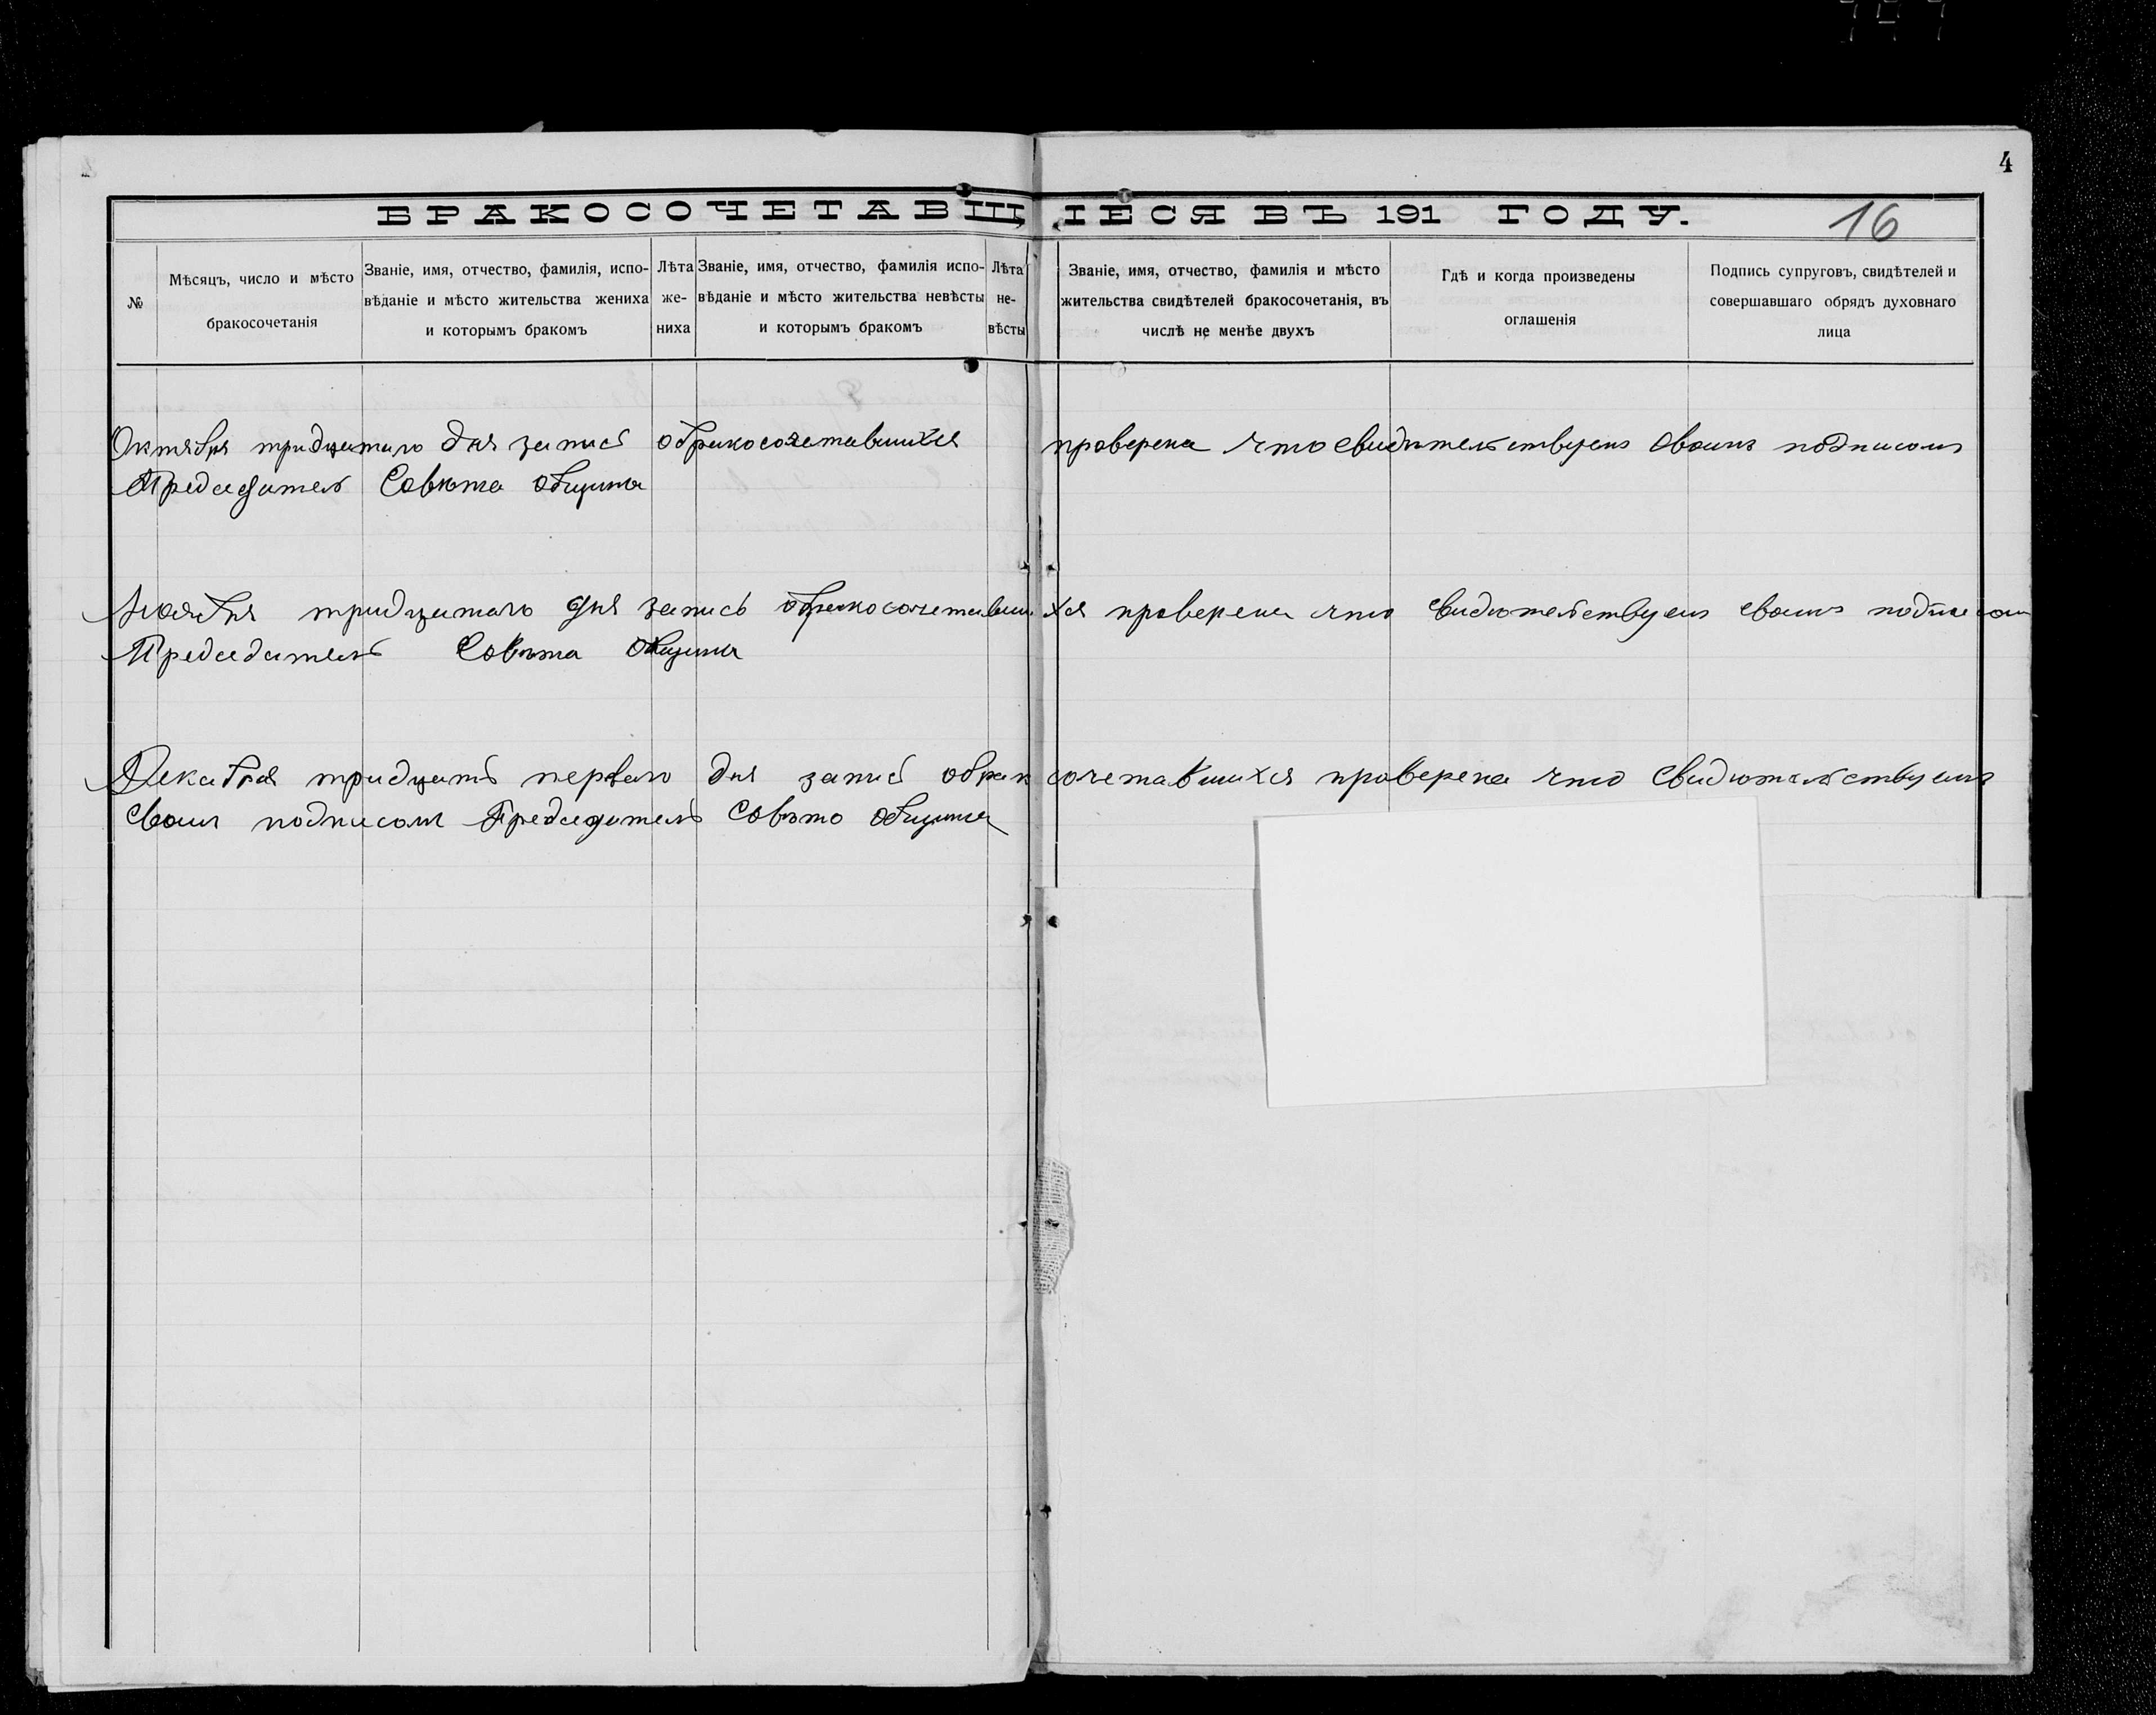 4
БРАКОСОЧЕТАВШІЕСЯ ВЪ 191 ГОДУ.
16
№
Мѣсяцъ, число и мѣсто
бракосочетанія
Званіе, имя, отчество, фамилія, испо-
вѣданіе и мѣсто жительства жениха
и которымъ бракомъ
Лѣта
же-
ниха
Званіе, имя, отчество, фамилія испо-
вѣданіе и мѣсто жительства невѣсты
и которымъ бракомъ
Лѣта
не-
вѣсты
Званіе, имя, отчество, фамилія и мѣсто
жительства свидѣтелей бракосочетанія, въ
числѣ не менѣе двухъ
Гдѣ и когда произведены
оглашенія
Подпись супруговъ, свидѣтелей и
совершавшаго обрядъ духовнаго
лица
Октября тридцатаго дня запись обракосочетавшихся проверена что свидѣтельствуемъ своимъ подписомъ
Председатель Совѣта общины
Ноября тридцатаго дня запись обракосочетавшихся проверена что свидѣтельствуемъ своимъ подписом
Председатель Совѣта общины
Декабря тридцать перваго дня запись обракосочетавшихся проверена что свидѣтельствуемъ
своим подписом Председатель Совѣта общины